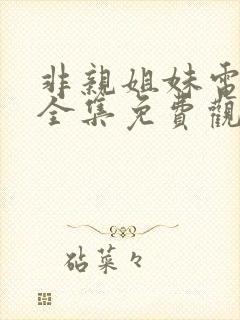 非親姐妹電
全集免費觀
砧菜々